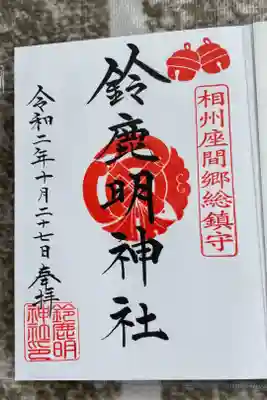 相州座間郷総鎮守
鈴鹿明神社
令和二年十月二十七日 奉拝
鈴鹿明
神社印